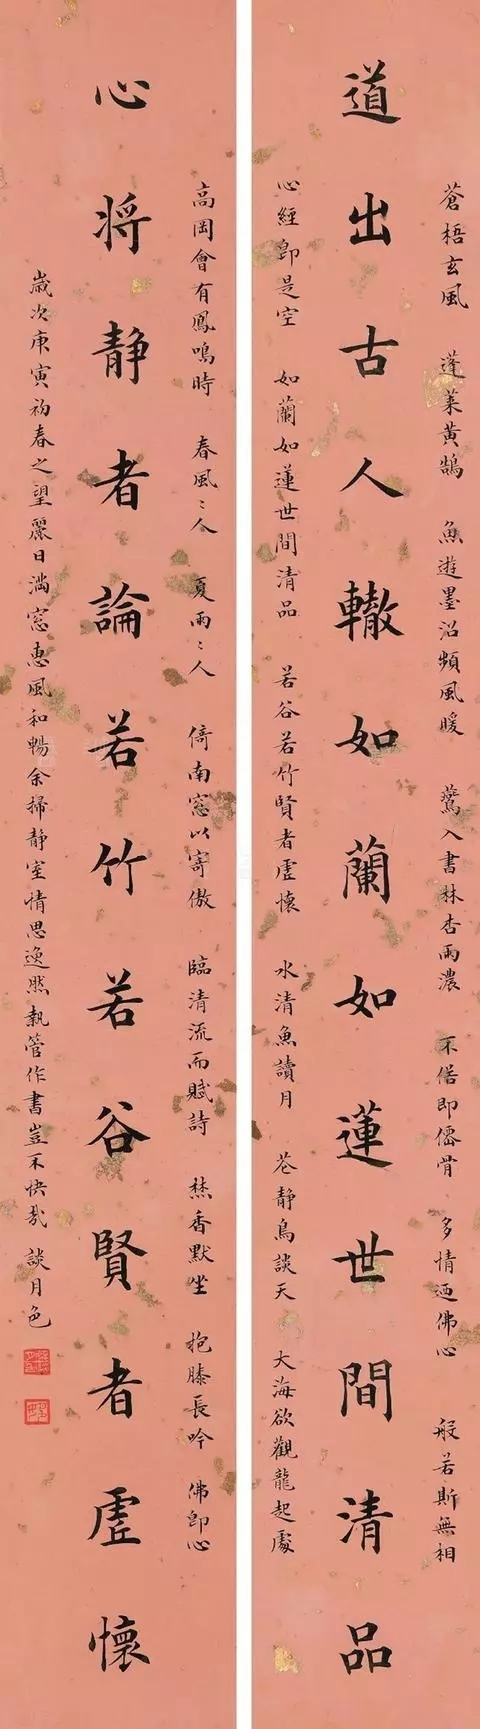 蒼梧玄風 蓬萊黃鵠 魚遊墨沼頻風暖 鶯入書林杏雨濃 不俗即僊骨 多情迺佛心 般若斯無相
道出古人轍如蘭如蓮世間清品
心經即是空 如蘭如蓮世間清品 若谷若竹賢者虛懷 水清魚讀月 花静鳥談天 大海欲觀龍起處
高岡會有鳳鳴時 春風〻人 夏雨〻人 倚南窓以寄傲 臨清流而賦詩 焚香默坐 抱膝長吟 佛即心
心將静者論若竹若谷賢者虛懷
歲次庚寅初春之望麗日滿窓惠風和暢余掃静室情思逸然執管作書豈不快哉 談月色